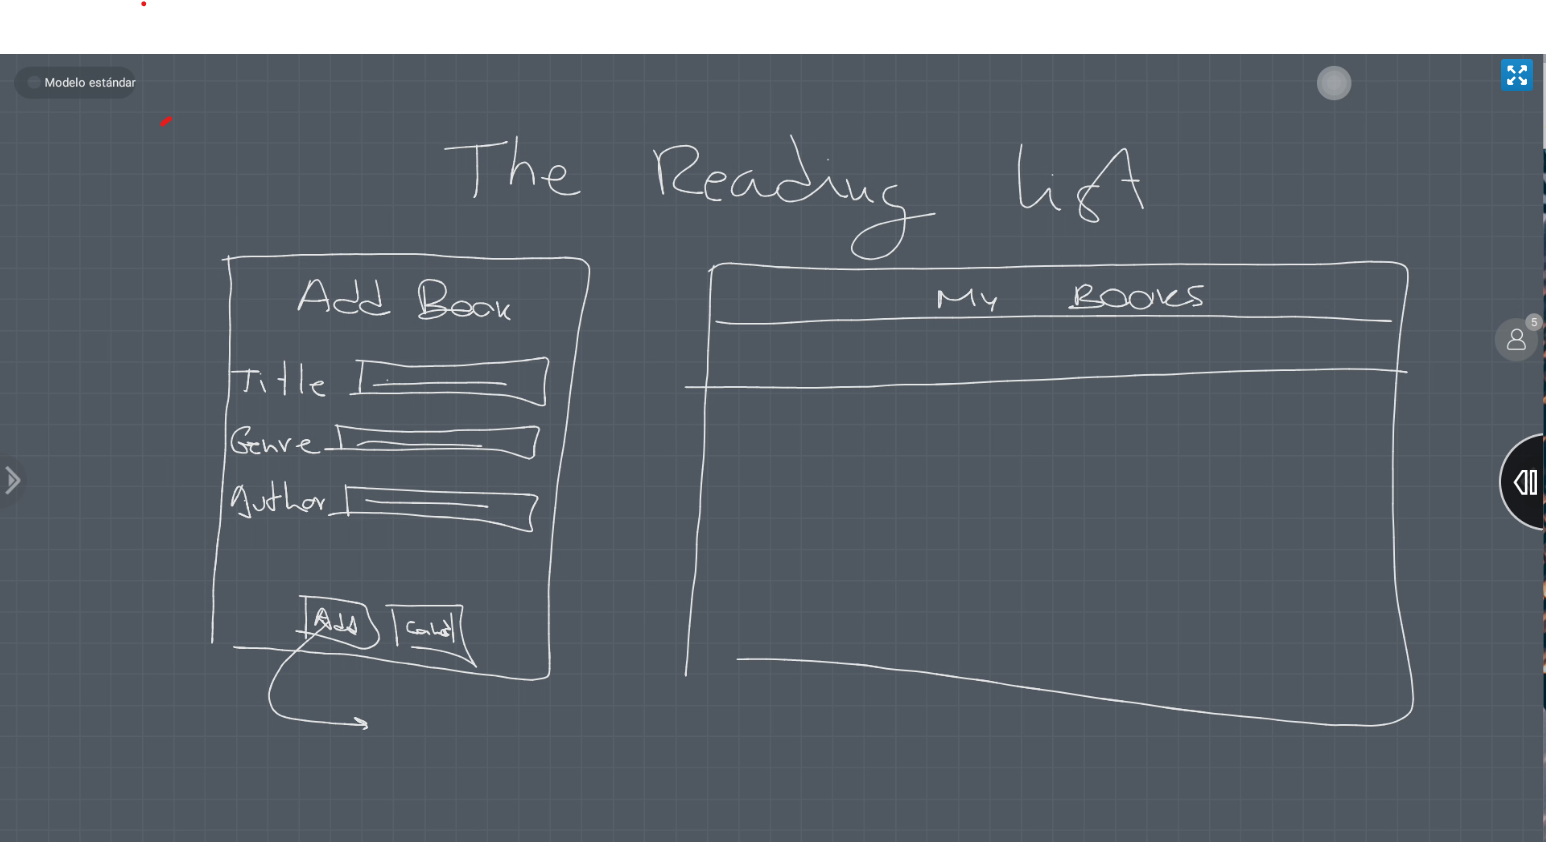 Modelo estándar
The Reading list
Add Book
Title
Genre
Author
Add Cancel
My Books
5